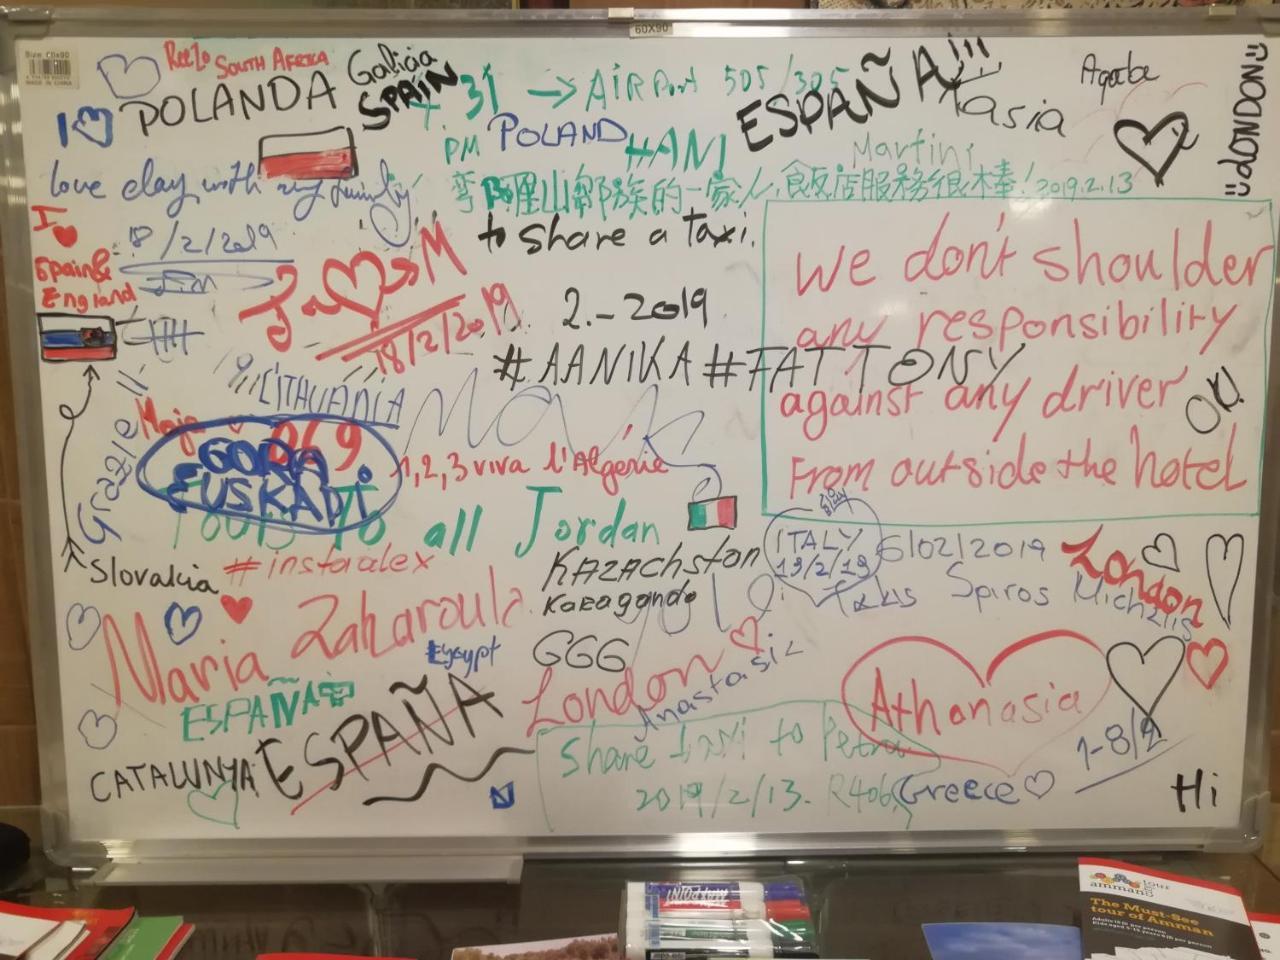 60X90
Size: 60x90
ReeZo SOUTH AFRICA
Galicia
SPAIN
31 → AiRPort 505/305
ESPAÑA!!!
Kasia
Agata
LONDON
I
POLANDA
PM
POLAND
HANI
Martin
love day with my family
山鄉族的一家人,飯店服務很棒! 2019.2.13
I
Spain &
England
18/2/2019
J M
18/2/2019
to share a taxi.
2.-2019
#AANIKA #FATTONY
We don't shoulder
any responsibility
against any driver
From outside the hotel
OK!
LITHUANIA
Grazie!!
Maja
069
GORA
EUSKADI
1,2,3 viva l'Algérie
Tours To all Jordan
Slovakia
#instaalex
Kazachstan
Karaganda
ITALY
13/2/19
6/02/2019
Spiros Michalis
London
Maria Zaharoula
Egypt
GGG
London
Anastasia
Athanasia
ESPAÑA
ESPAÑA
CATALUNYA
Share taxi to Petra
2019/2/13. R406
Greece
1-8/2
Hi
amman
The Must-See
tour of Amman